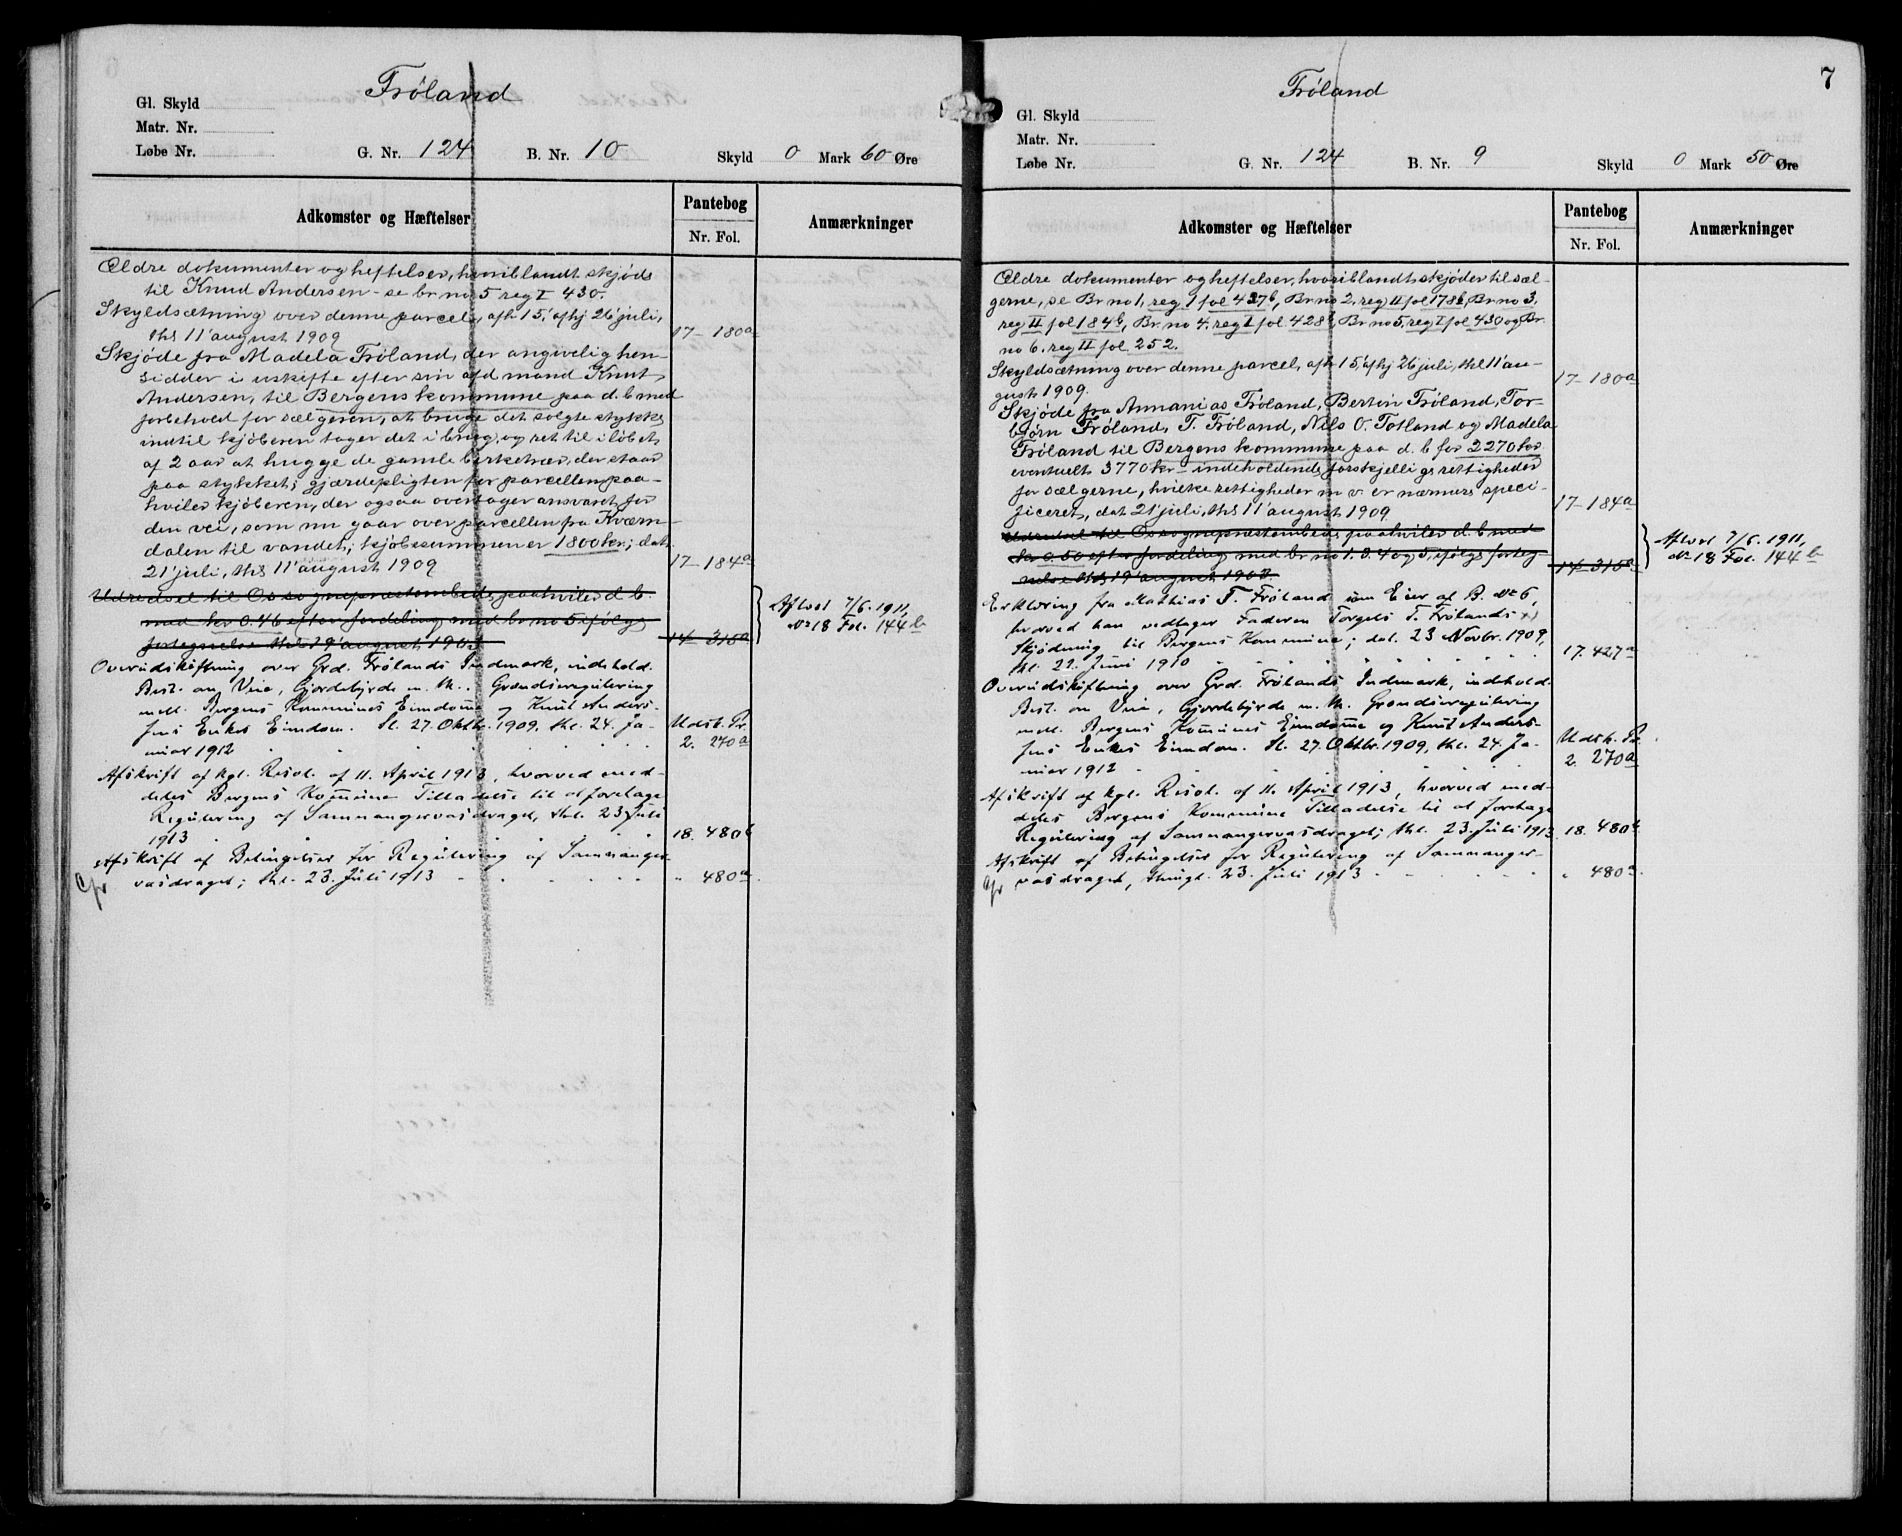 Frøland
Gl. Skyld
Matr. Nr.
Løbe Nr.
G. Nr. 124 B. Nr. 10 Skyld 0 Mark 60 Øre
Adkomster og Hæftelser
Pantebog
Nr. Fol.
Anmærkninger
Ældre dokumenter og heftelser, hvoriblandt skjøde
til Knud Andersen - se br no 5 reg I 430.
Skyldsætning over denne parcel, afh 15', afhj 26' juli,
thl 11' august 1909 17 - 180a
Skjøde fra Madela Frøland, der angivelig hen-
sidder i uskifte efter sin afd mand Knut
Andersen, til Bergens kommune paa d. b med
forbehold for sælgeren, at bruge det solgte stykke
indtil kjøberen tager det i brug, og ret til i løbet
af 2 aar at hugge de gamle birketrær, der staar
paa stykket; gjærdepligten for parcellen paa-
hviler kjøberen, der ogsaa overtager ansvaret for
den vei, som nu gaar over parcellen fra Kværn-
dalen til vandet; kjøbesummen er 1800 kr; dat
21' juli, thl 11' august 1909 17 - 184a
Udredsel til Os sogneprestembede paahviler d. b.
med kr 0.46 efter fordeling med br. no 5 ifølge
fortegnelse thl 19' august 190 14 - 315a
Aflyst 7/6. 1911,
No 18 Fol. 144b
Overudskiftning over Grd. Frølands Indmark, indehold.
Best. om Veie, Gjerdebyrde m. m. Grændseregulering
mell. Bergens Kommunes Eiendomme og Knut Anders-
sens Enkes Eiendom. Sl. 27. Oktbr. 1909, thl. 24. Ja-
nuar 1912 Udsk. Pr.
2. 270a
Afskrift af kgl. Resol. af 11. April 1913, hvorved med-
deles Bergens Kommune Tilladelse til at foretage
Regulering af Samnangervasdraget, thl. 23 Juli
1913 18. 480b
Afskrift af Betingelser for Regulering af Samnanger-
vasdraget; thl. 23. Juli 1913 " 480a
7
Frøland
Gl. Skyld
Matr. Nr.
Løbe Nr.
G. Nr. 124 B. Nr. 9 Skyld 0 Mark 50 Øre
Adkomster og Hæftelser
Pantebog
Nr. Fol.
Anmærkninger
Ældre dokumenter og heftelser, hvoriblandt skjøder til sæl-
gerne, se Br no 1, reg I fol 427b, Br no 2, reg II fol 178b, Br no 3,
reg II fol 184b, Br. no 4. reg I fol 428b, Br no 5, reg I fol 430 og Br.
no 6. reg II fol 252.
Skyldsætning over denne parcel, afh 15', afhj 26' juli, thl 11' au-
gust 1909. 17 - 180a
Skjøde fra Annanias Frøland, Bertin Frøland, Tor-
bjørn Frøland, T. Frøland, Nils O. Totland og Madela
Frøland til Bergens kommune paa d. b for 2270 kr
eventuelt 3770 kr - indeholdende forskjellige rettigheder
for sælgerne, hvilke rettigheder m v er nærmere speci-
ficeret, dat 21' juli, thl 11' august 1909 17 - 184a
Udredsel til Os sogneprestembede paahviler d. b med
kr 0.50 efter fordeling med br no 1. 3. 4 og 5, ifølge forteg-
nelse thl 19' august 190 14 - 315a
Aflyst 7/6. 1911,
No 18 Fol. 144b
Erklæring fra Mathias T. Frøland som Eier af B. No 6,
hvorved han vedtager Faderen Torgels T. Frølands
Skjødning til Bergens Kommune; dat. 23 Novbr. 1909,
thl. 22. Juni 1910 17. 427a
Overudskiftning over Grd. Frølands Indmark, indehold
Best. om Veie, Gjerdebyrde m. m. Grændseregulering
mell. Bergens Kommunes Eiendomme og Knut Anders-
sens Enkes Eiendom. Sl. 27. Oktbr. 1909, thl. 24. Ja-
nuar 1912 Udsk. Pr.
2. 270a
Afskrift af kgl. Resol. af 11. April 1913, hvorved med-
deles Bergens Kommune Tilladelse til at foretage
Regulering af Samnangervasdraget; thl. 23. Juli 1913 18. 480b
Afskrift af Betingelser for Regulering af Samnanger-
vasdraget, thingl. 23. Juli 1913 " 480a